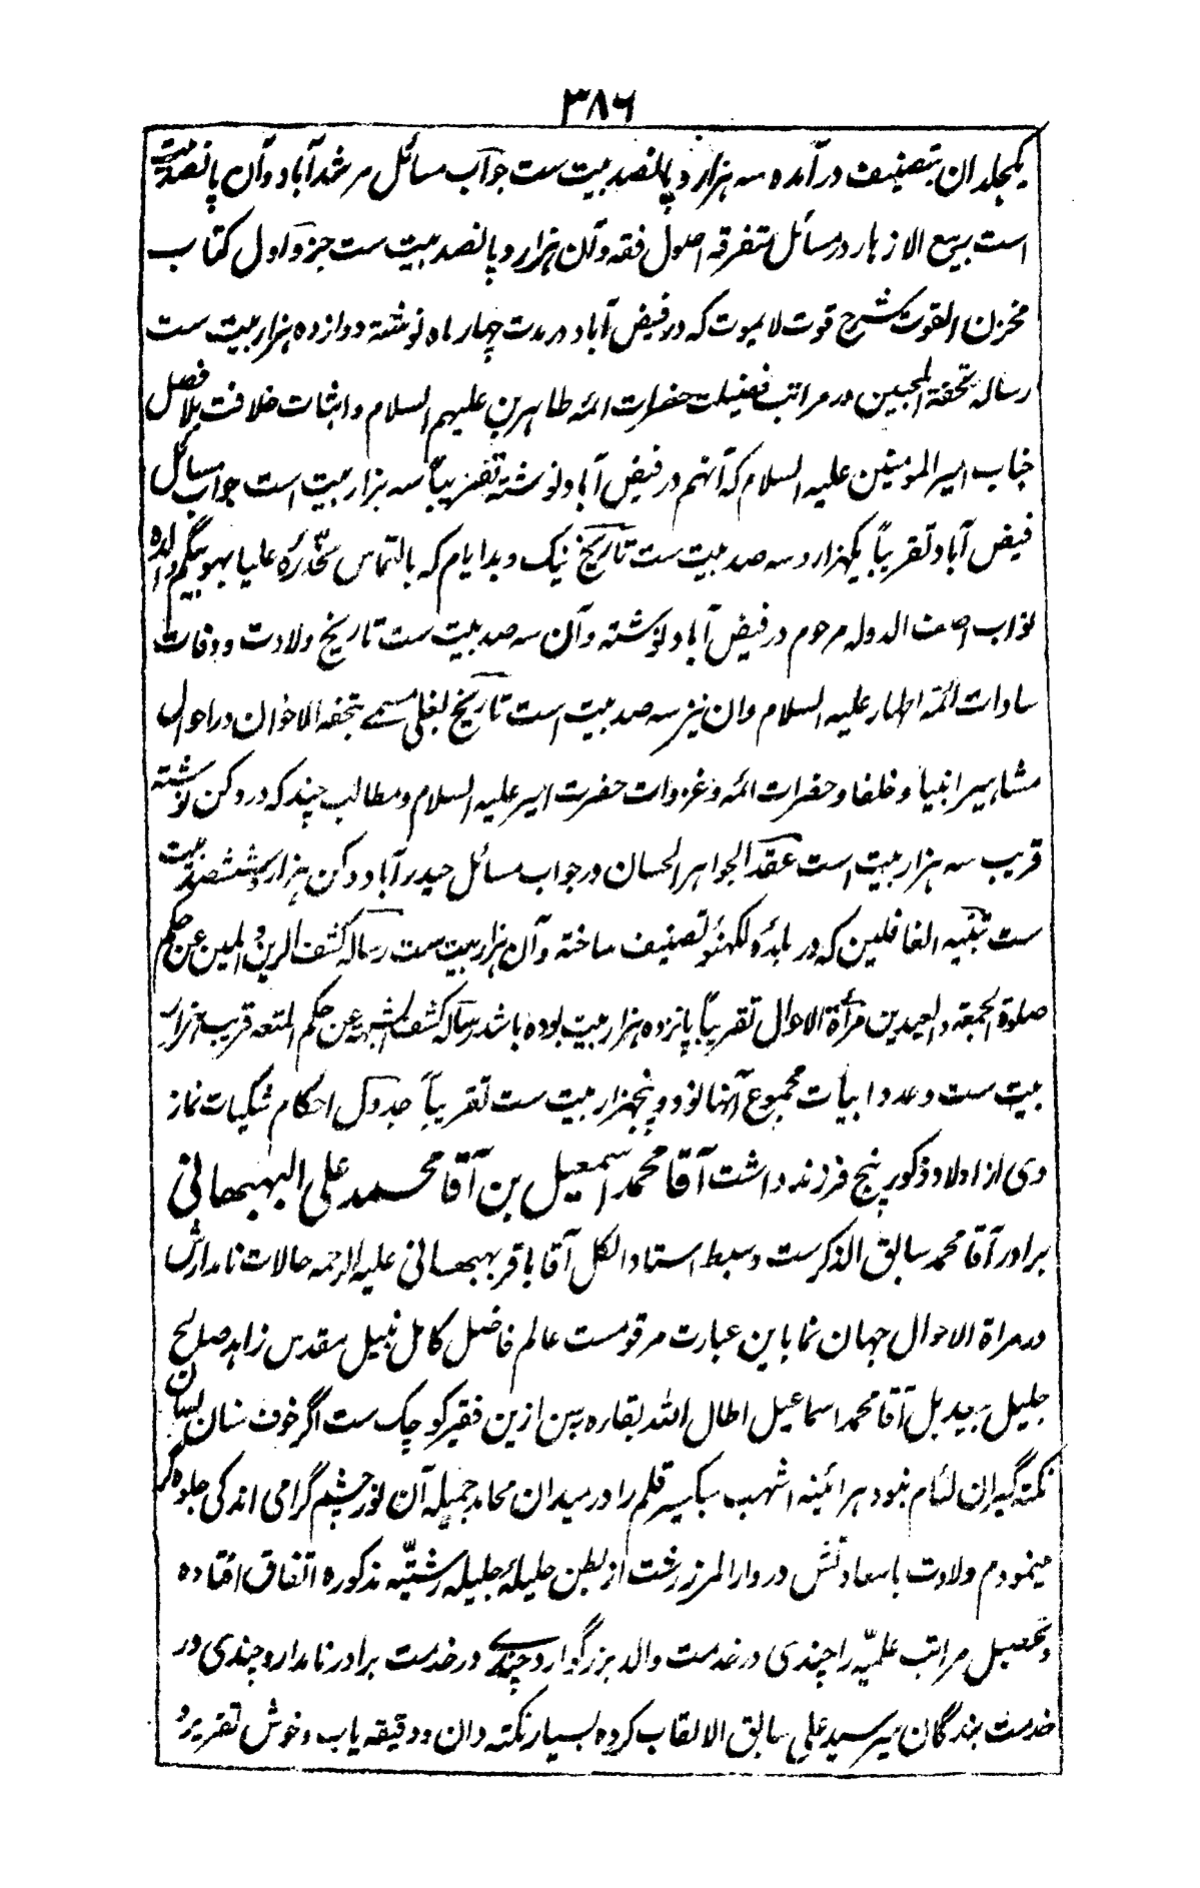 ۳۸۶
یکجلد ان بتصنیف درآمده سه هزار و پانصد بیت ست جواب مسائل مرشدآباد وآن پانصد بیت
است ربیع الازهار در مسائل متفرقه اصول فقه وآن هزار و پانصد بیت ست جزو اول کتاب
مخزن القوت شرح قوت لایموت که در فیض آباد در مدت چهار ماه نوشته دوازده هزار بیت ست
رساله تحفة المحبین در مراتب فضیلت حضرات ائمه طاهرین علیهم السلام و اثبات خلافت بلا فصل
جناب امیر المومنین علیه السلام که آنهم در فیض آباد نوشته تقریباً سه هزار بیت است جواب مسائل
فیض آباد تقریباً یکهزار و سه صد بیت ست تاریخ نیک و بد ایام که بالتماس مخدّره علیا بهو بیگم والده
نواب آصف الدوله مرحوم در فیض آباد نوشته وآن سه صد بیت ست تاریخ ولادت و وفات
سادات ائمه اطهار علیه السلام وان نیز سه صد بیت است تاریخ بغلی مسمے بتحفه الاخوان در احوال
مشاهیر انبیا و خلفا و حضرات ائمه و غزوات حضرت امیر علیه السلام و مطالب چند که در دکن نوشته
قریب سه هزار بیت است عقد الجواهر الحسان در جواب مسائل حیدرآباد دکن هزار و ششصد بیت
ست تنبیه الغافلین که در بلدۀ لکهنؤ تصنیف ساخته وآن هزار بیت ست رساله کشف الرین و المین عن حکم
صلوة الجمعه و العیدین مرأة الاحوال تقریباً پانزده هزار بیت بوده باشد رساله کشف الشبهه عن حکم المتعه قریب هزار
بیت ست و عدد ابیات مجموع آنها نود و پنجهزار بیت ست تقریباً جدول احکام شکیات نماز
وی از اولاد ذکور پنج فرزند داشت آقا محمد اسمعیل بن آقا محمد علی البهبهانی
برادر آقا محمد سابق الذکرست و سبط استاد الکل آقا باقر بهبهانی علیه الرحمه حالات نامدارش
در مراة الاحوال جهان نما باین عبارت مرقومست عالم فاضل کامل نبیل مقدس زاهد صالح
جلیل بیدیل آقا محمد اسماعیل اطال الله بقاره بین ازین فقیر کوچک ست اگر خوف سنان لسان
نکته گیران لئام نبود هر آئینه اشهب سبکسیر قلم را در میدان محامد جمیله آن نور چشم گرامی اندکی جلوه گر
مینمودم ولادت باسعادتش در دار المرز رشت از بطن حلیلۀ جلیله رشتیّه مذکوره اتفاق افتاده
وتحصیل مراتب علمیّه را چندی در خدمت والد بزرگوار و چندے در خدمت برادر نامدار و چندی در
خدمت بندگان میر سید علی سابق الالقاب کرده بسیار نکته دان و دقیقه یاب و خوش تقریر و